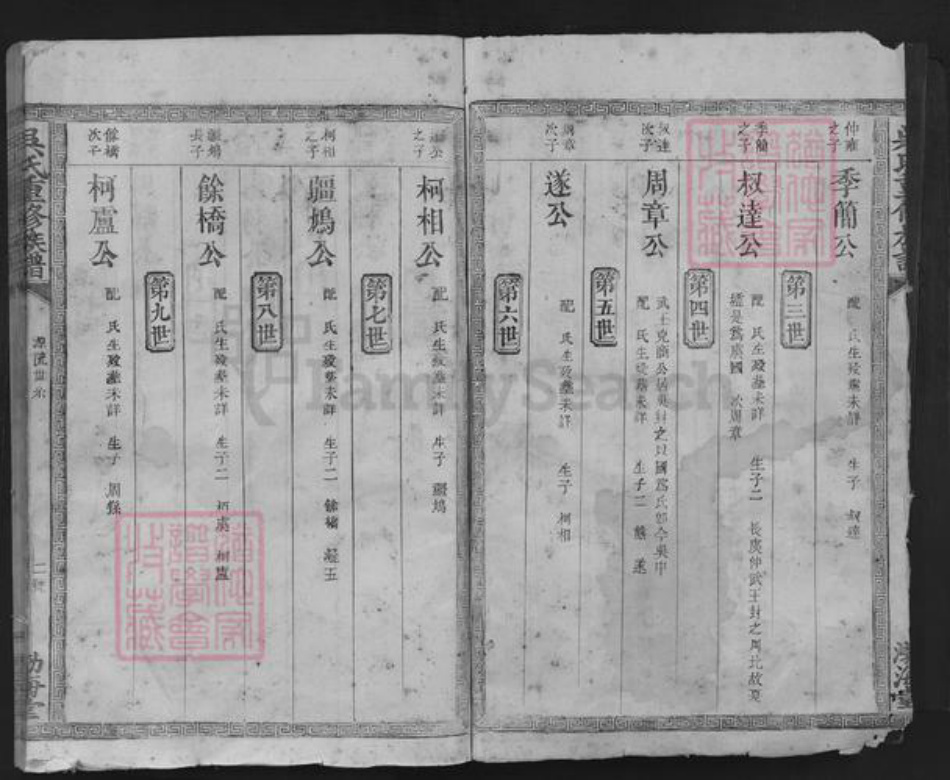 仲雍之子
季簡公
配 氏生殁塟未詳 生子 叔達
第三世
季簡之子
叔達公
配 氏生殁塟未詳 生子二 長虞仲武王封之周北故夏
墟是為虞國 次周章
第四世
叔達次子
周章公
武王克商公居吳封之以國為氏即今吳中
配 氏生殁塟未詳 生子二 熊 遂
第五世
周章次子
遂公
配 氏生殁塟未詳 生子 柯相
第六世
之子
柯相公
配 氏生殁塟未詳 生子 疆鳩
第七世
柯相之子
疆鳩公
配 氏生殁塟未詳 生子二 餘橋 疑五
第八世
疆鳩長子
餘橋公
配 氏生殁塟未詳 生子二 柯盧
第九世
餘橋次子
柯盧公
配 氏生殁塟未詳 生子 周繇
吳氏重修族譜
源流世系
二
渤海堂
FamilySearch